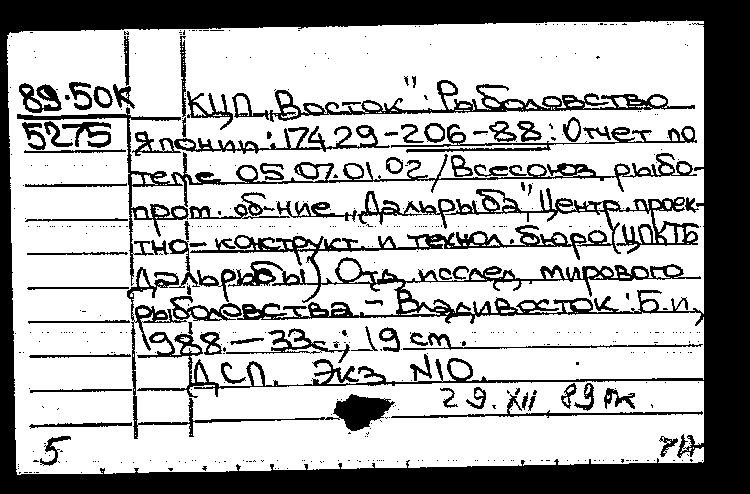 89.50К КЦП „Восток": Рыболовство
5275 Японии: 17429-206-88: Отчет по
теме 05.07.01.02/Всесоюз. рыбо-
пром. об-ние „Дальрыба", Центр. проек-
тно-конструкт. и технол. бюро (ЦПКТБ
Дальрыбы). Отд. исслед. мирового
рыболовства. - Владивосток: Б.и.,
1988. - 33с.; 19 см.
ДСП. Экз. N10.
29.XII.89
5